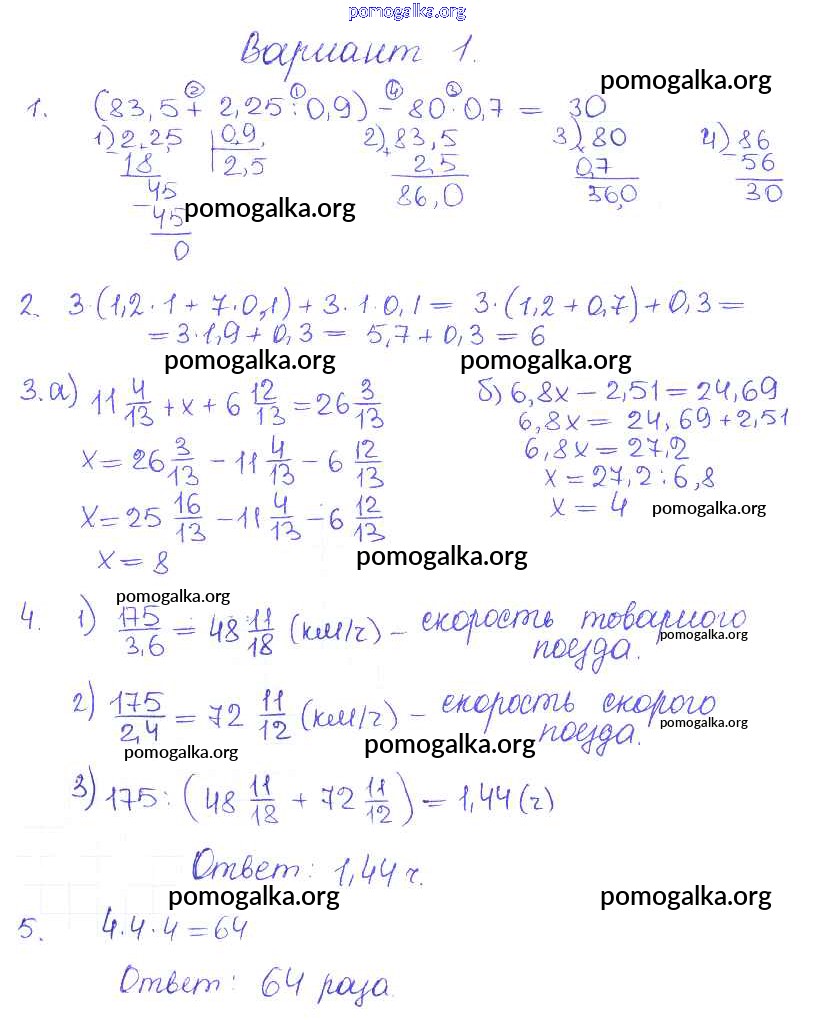 pomogalka.org
Вариант 1.
pomogalka.org
1. (83,5 + 2,25 : 0,9) - 80 · 0,7 = 30
② ① ④ ③
1) 2,25 | 0,9 2) 83,5 3) 80 4) 86
- 18 | 2,5 + 2,5 × 0,7 - 56
45 86,0 56,0 30
- 45
0
pomogalka.org
2. 3·(1,2·1 + 7·0,1) + 3·1·0,1 = 3·(1,2 + 0,7) + 0,3 =
= 3·1,9 + 0,3 = 5,7 + 0,3 = 6
pomogalka.org pomogalka.org
3. а) 11 4/13 + x + 6 12/13 = 26 3/13
x = 26 3/13 - 11 4/13 - 6 12/13
x = 25 16/13 - 11 4/13 - 6 12/13
x = 8
б) 6,8x - 2,51 = 24,69
6,8x = 24,69 + 2,51
6,8x = 27,2
x = 27,2 : 6,8
x = 4
pomogalka.org
pomogalka.org
pomogalka.org
4. 1) 175/3,6 = 48 11/18 (км/ч) - скорость товарного
поезда.
pomogalka.org
2) 175/2,4 = 72 11/12 (км/ч) - скорость скорого
поезда.
pomogalka.org
pomogalka.org pomogalka.org
3) 175 : (48 11/18 + 72 11/12) = 1,44 (ч)
Ответ: 1,44 ч.
pomogalka.org pomogalka.org
5. 4·4·4 = 64
Ответ: 64 раза.